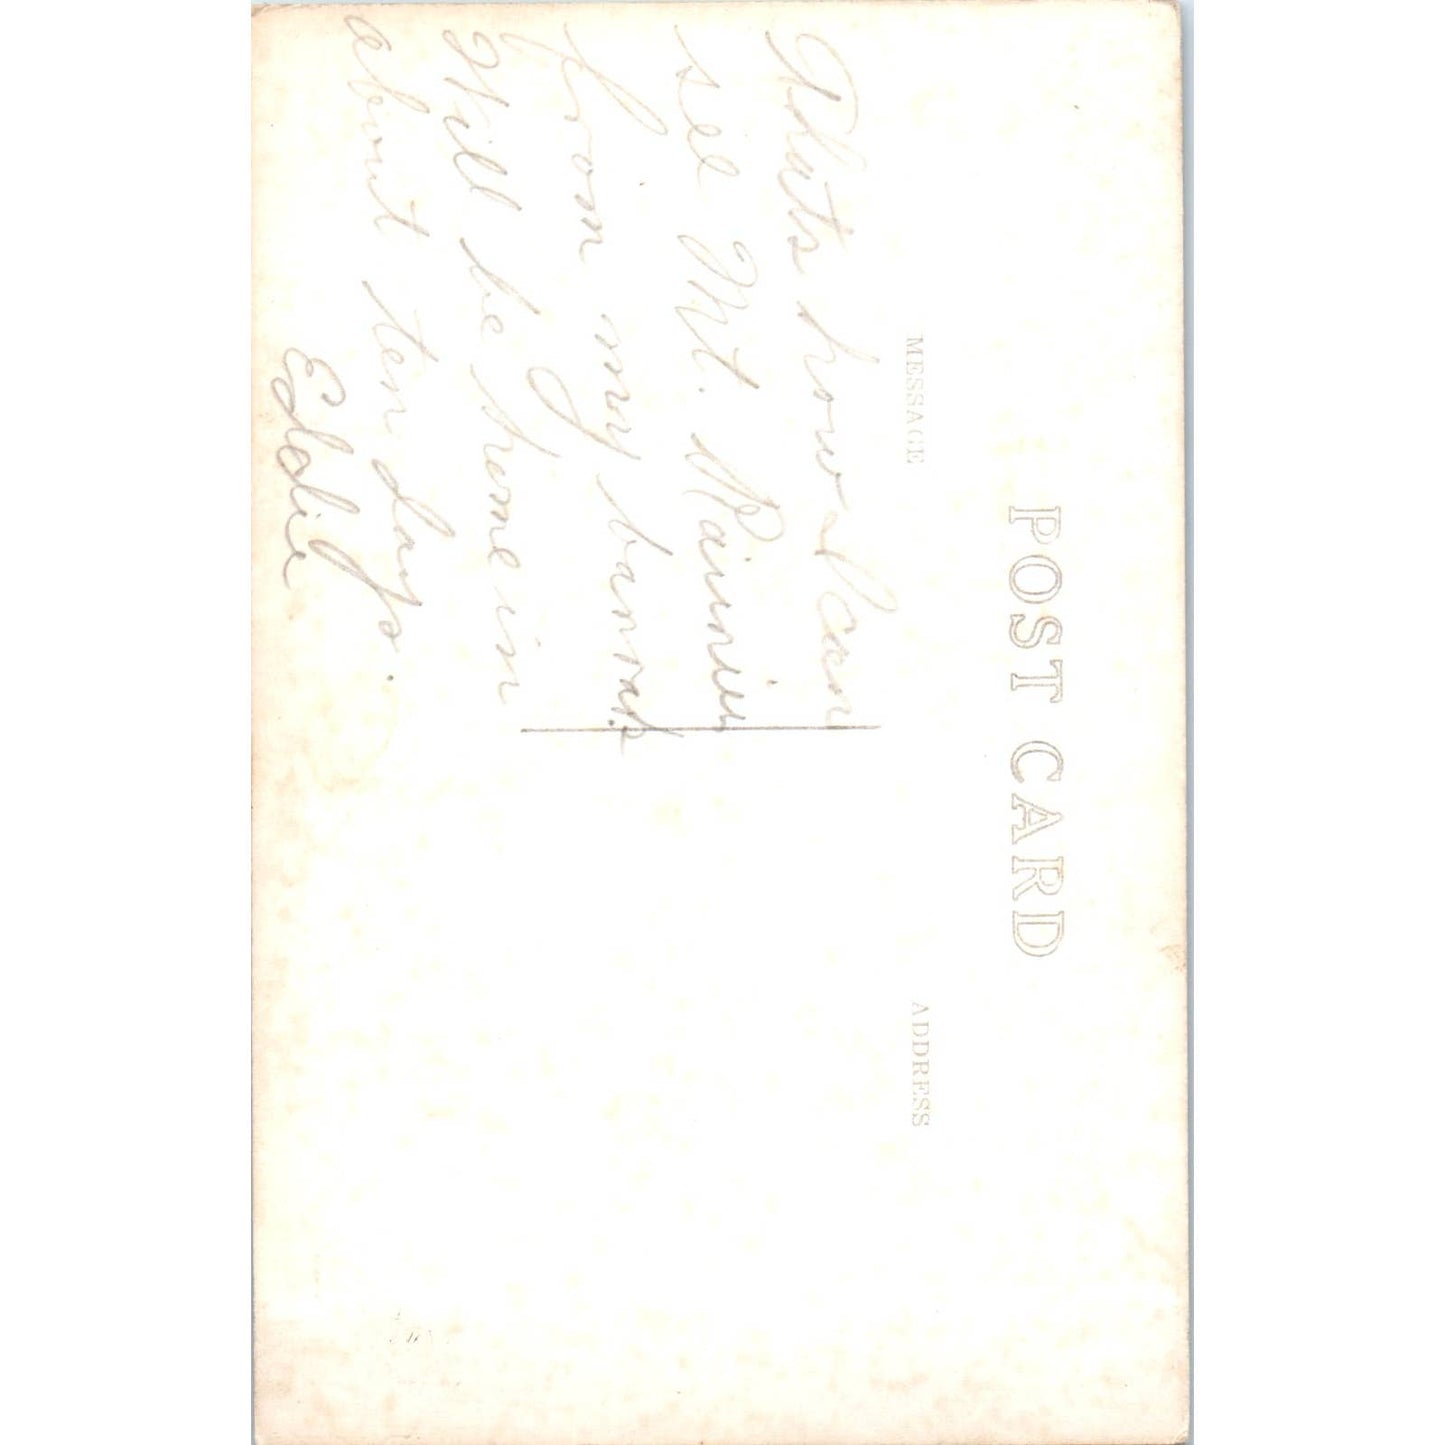 POST CARD
MESSAGE
ADDRESS
Thats how I can
see Mt. Rainier
from my barrak's.
Will be home in
about ten days.
Eddie